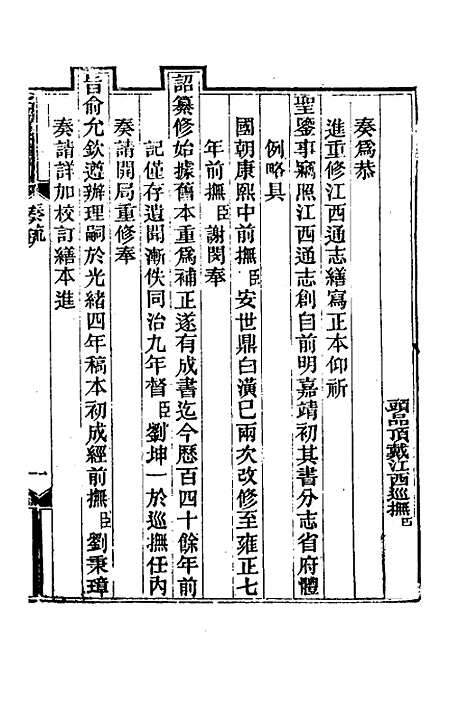 頭品頂戴江西巡撫臣
奏爲恭
進重修江西通志繕寫正本仰祈
聖鑒事竊照江西通志創自前明嘉靖初其書分志省府體
例略具
國朝康熙中前撫臣安世鼎白潢巳兩次改修至雍正七
年前撫臣謝閔奉
詔纂修始據舊本重爲補正遂有成書迄今歷百四十餘年前
記僅存遺聞漸佚同治九年督臣劉坤一於巡撫任內
奏請開局重修奉
旨俞允欽遵辦理嗣於光緒四年稿本初成經前撫臣劉秉璋
奏請詳加校訂繕本進
奏疏
一